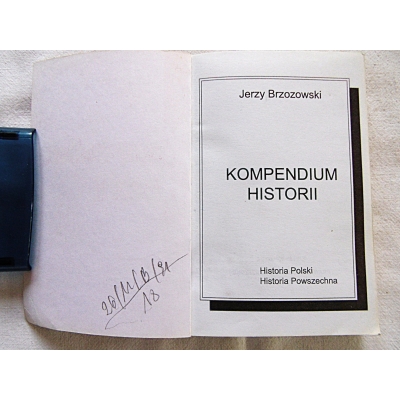 20/11/B/91
18
Jerzy Brzozowski
KOMPENDIUM
HISTORII
Historia Polski
Historia Powszechna